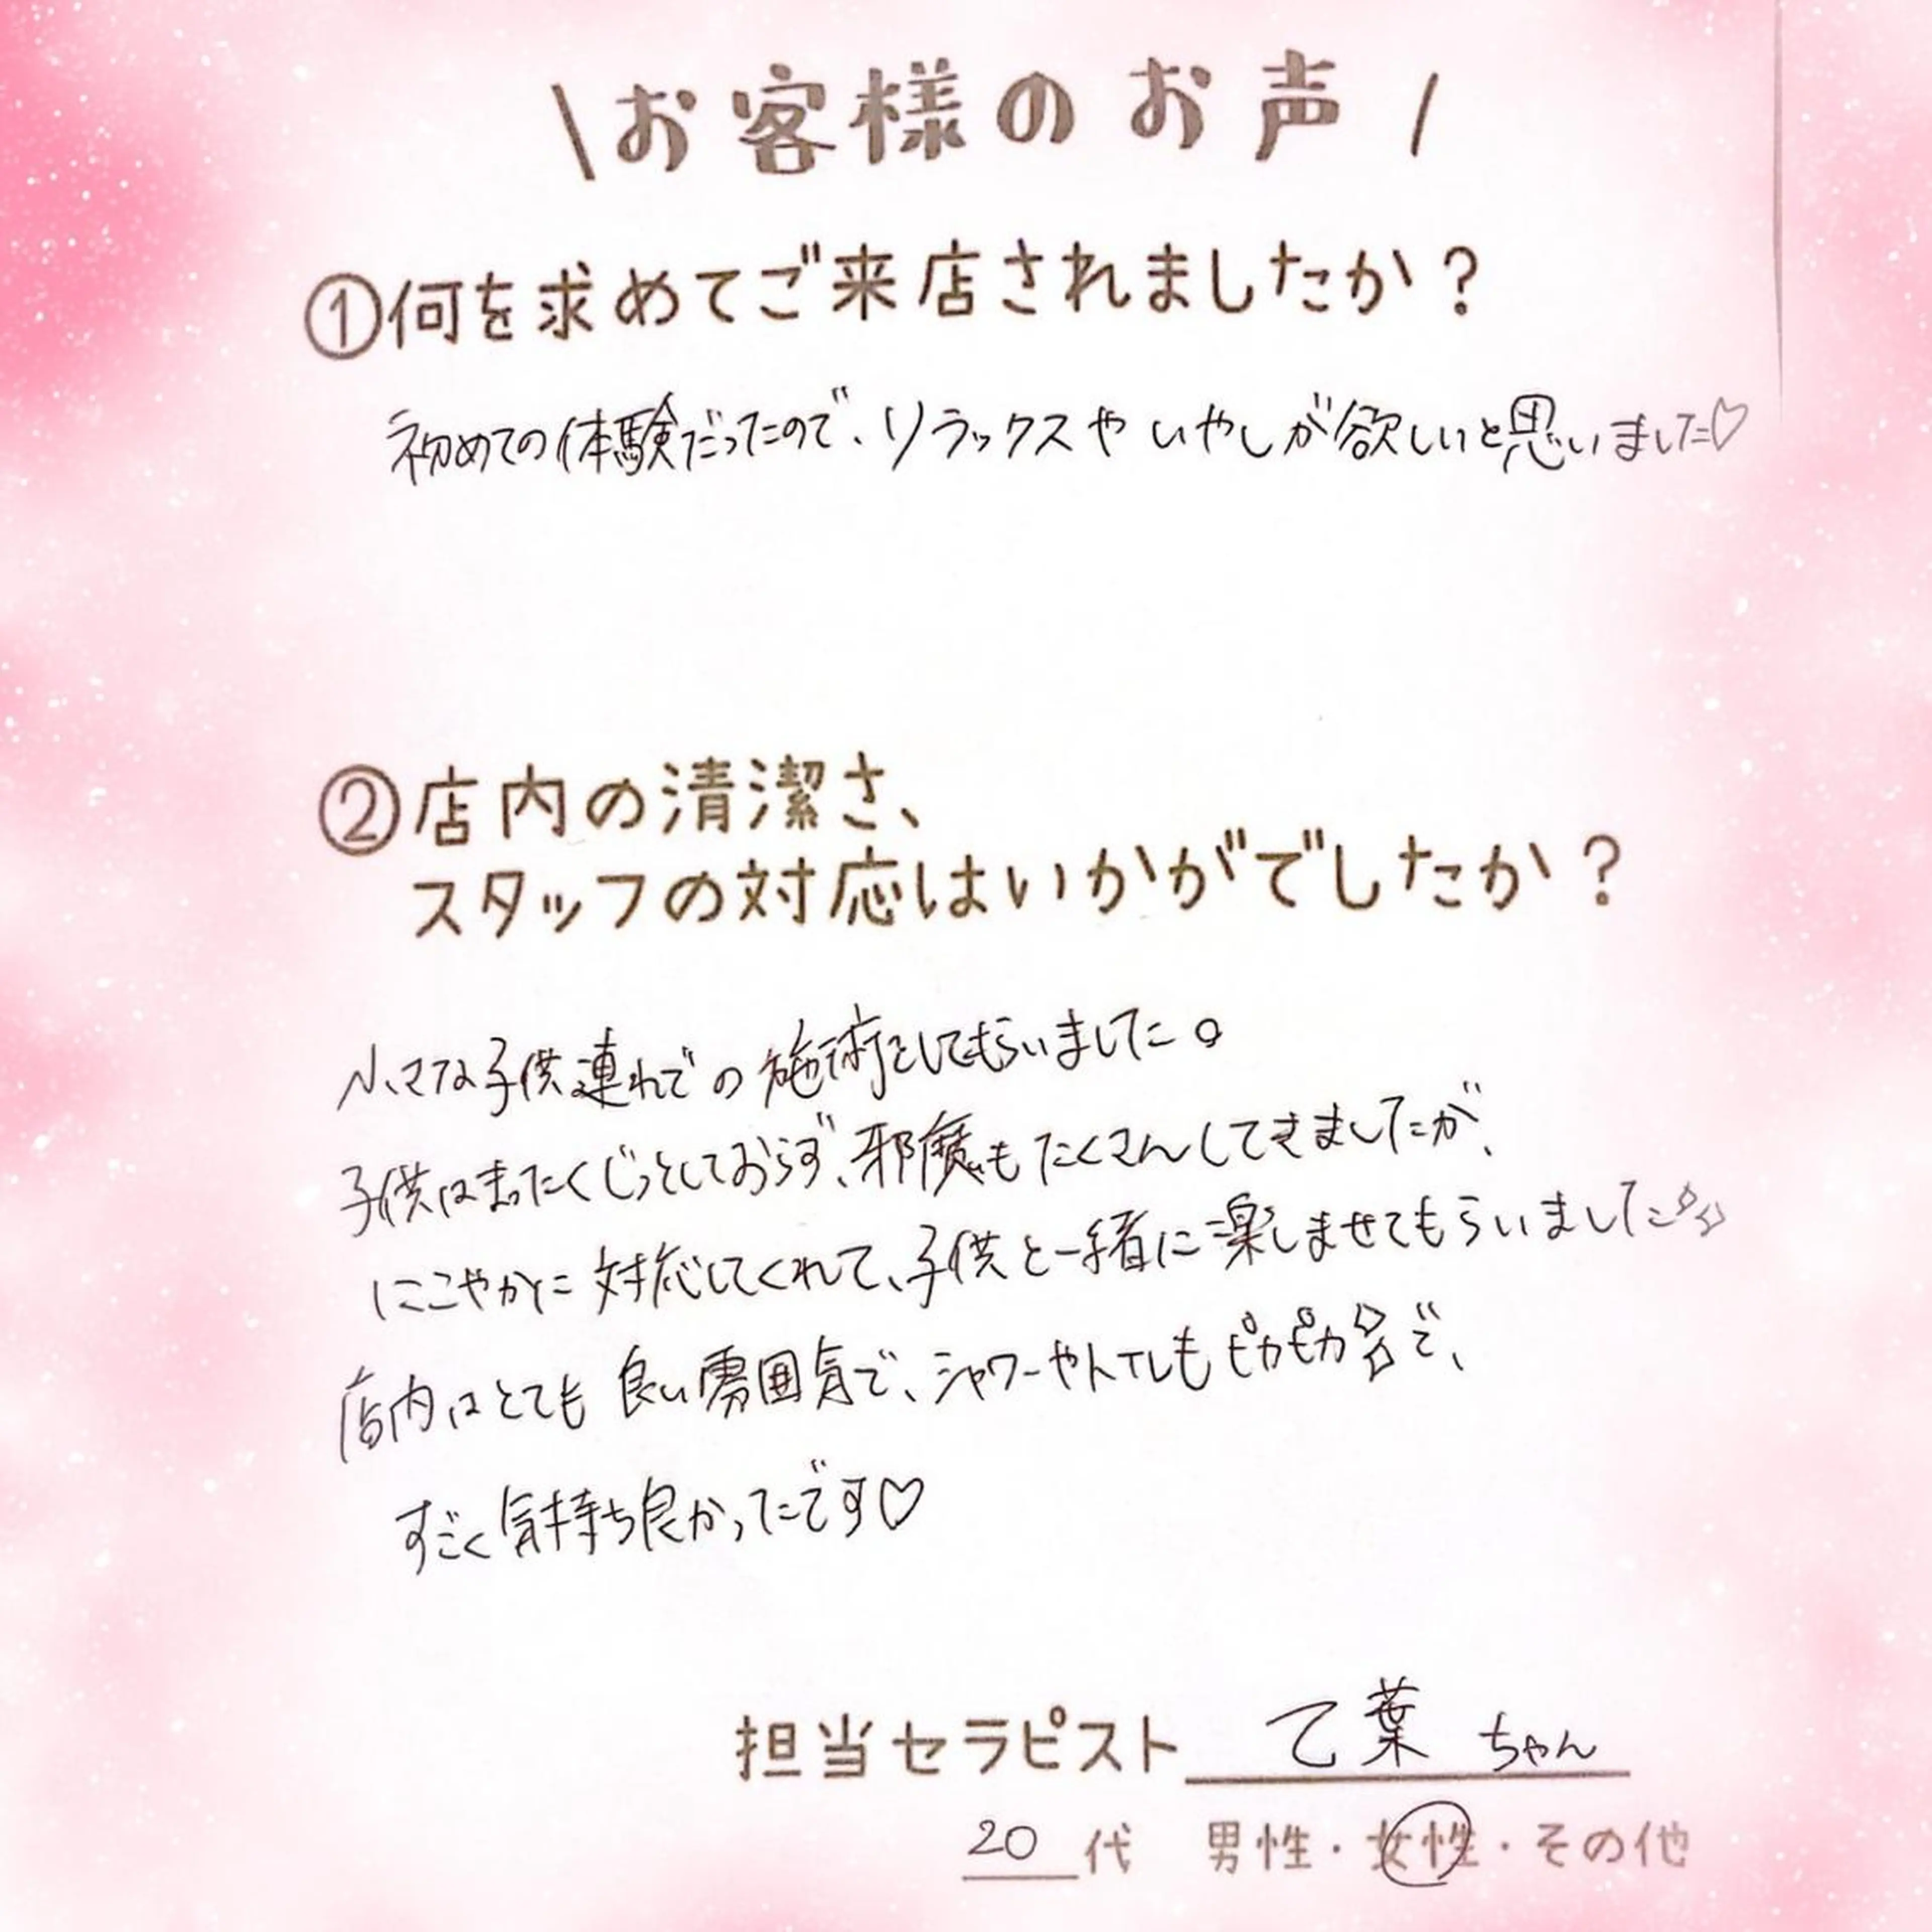 \お客様のお声/
①何を求めてご来店されましたか？
初めての体験だったので、リラックスやいやしが欲しいと思いました♡
②店内の清潔さ、
スタッフの対応はいかがでしたか？
小さな子供連れでの施術をしてもらいました。
子供はまったくじっとしておらず、邪魔もたくさんしてきましたが、
にこやかに対応してくれて、子供と一緒に楽しませてもらいました
店内はとても良い雰囲気で、シャワーやトイレもピカピカで、
すごく気持ち良かったです♡
担当セラピスト 乙葉 ちゃん
20代 男性・女性・その他